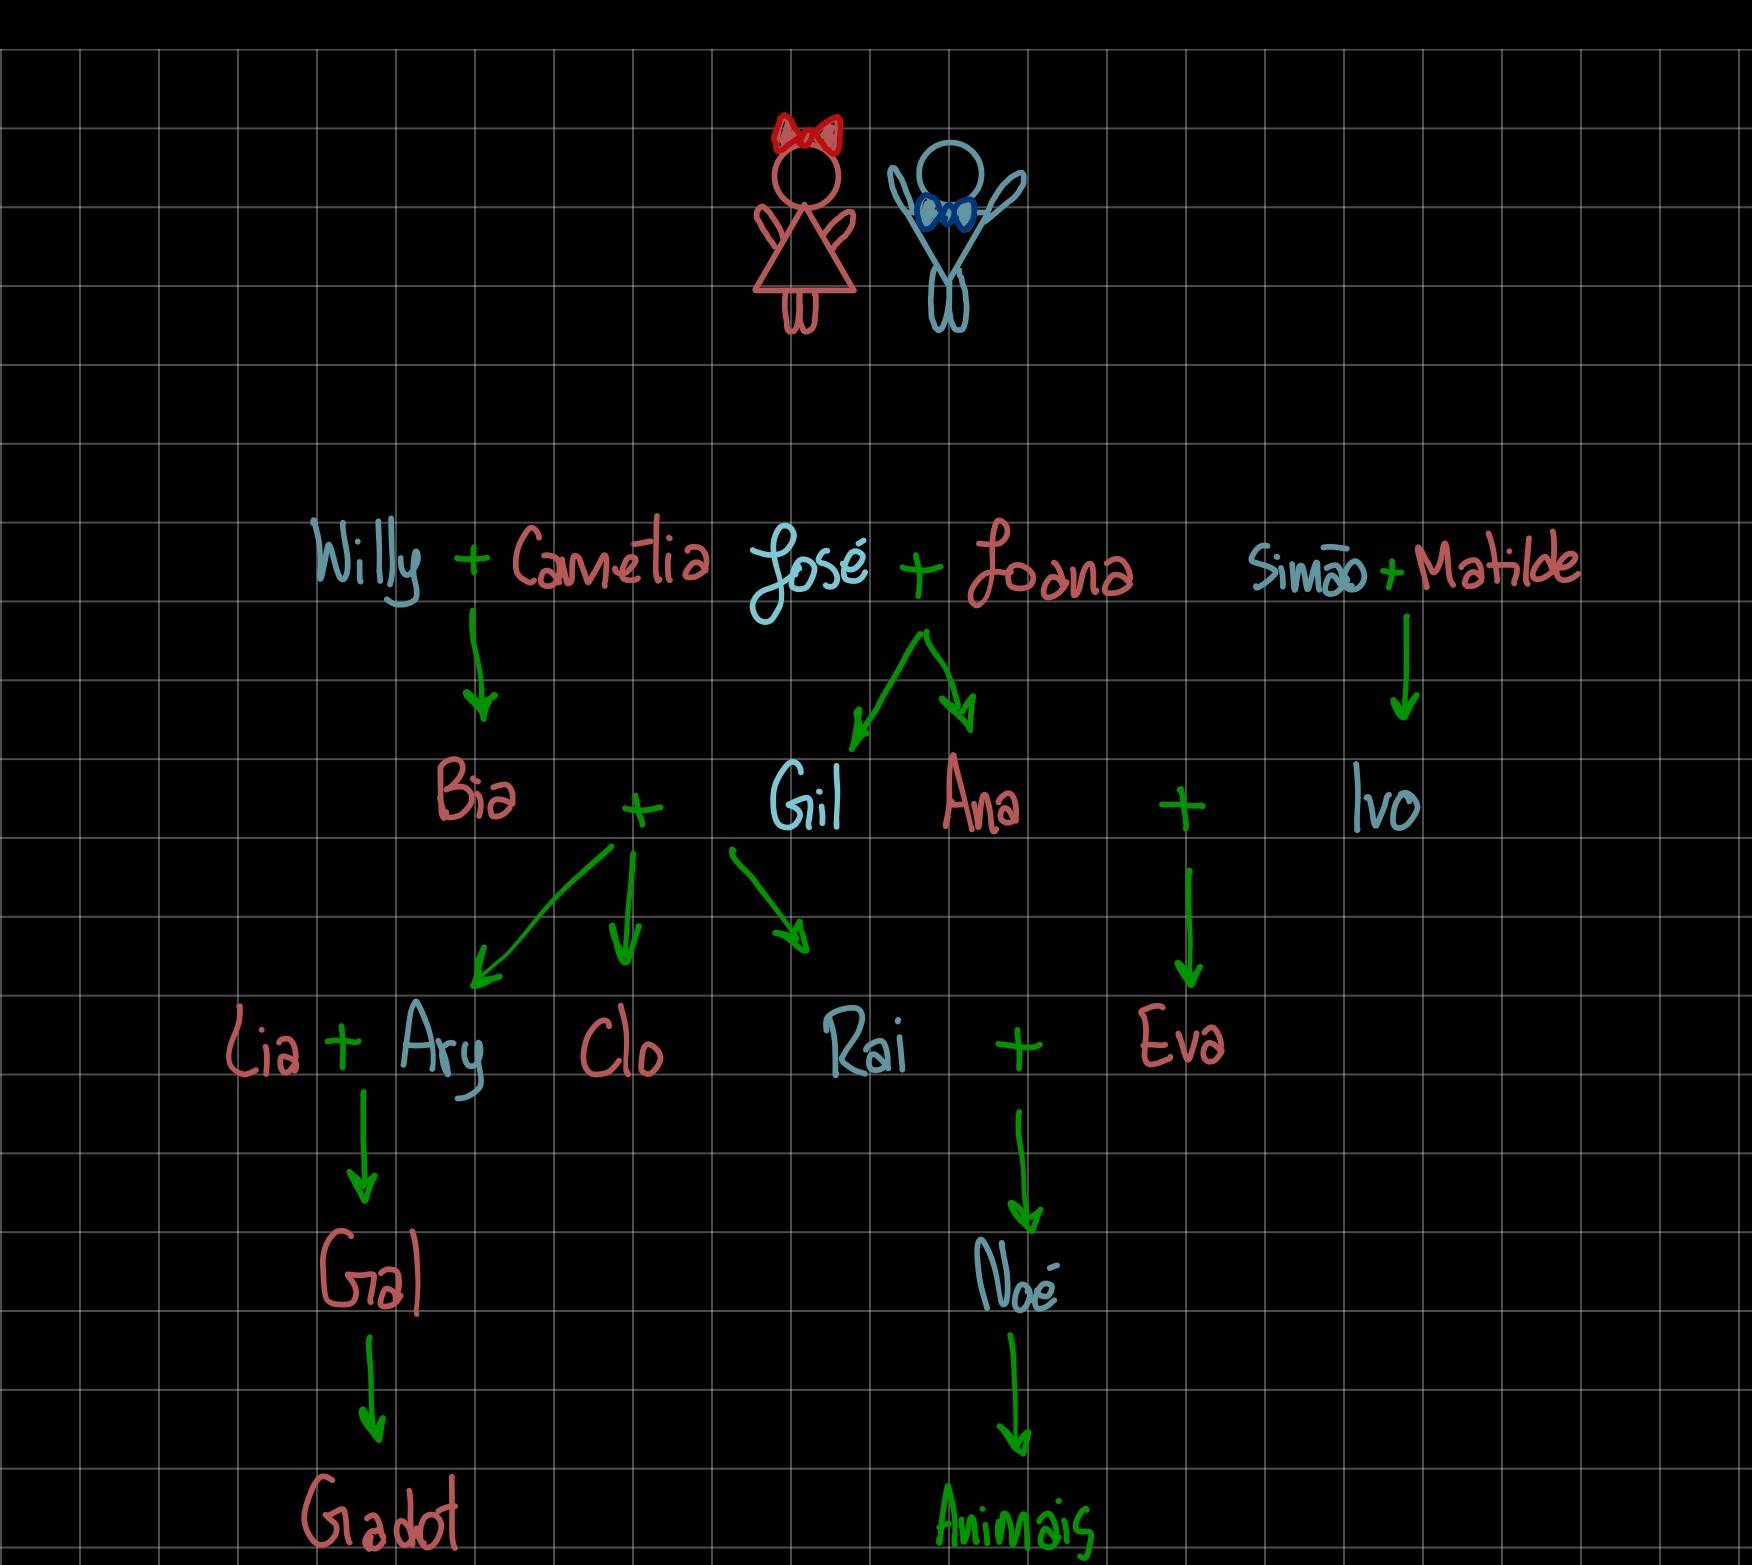 Willy + Camélia José + Joana Simão + Matilde
Bia + Gil Ana + Ivo
Lia + Ary Clo Rai + Eva
Gal Noé
Gadot Animais